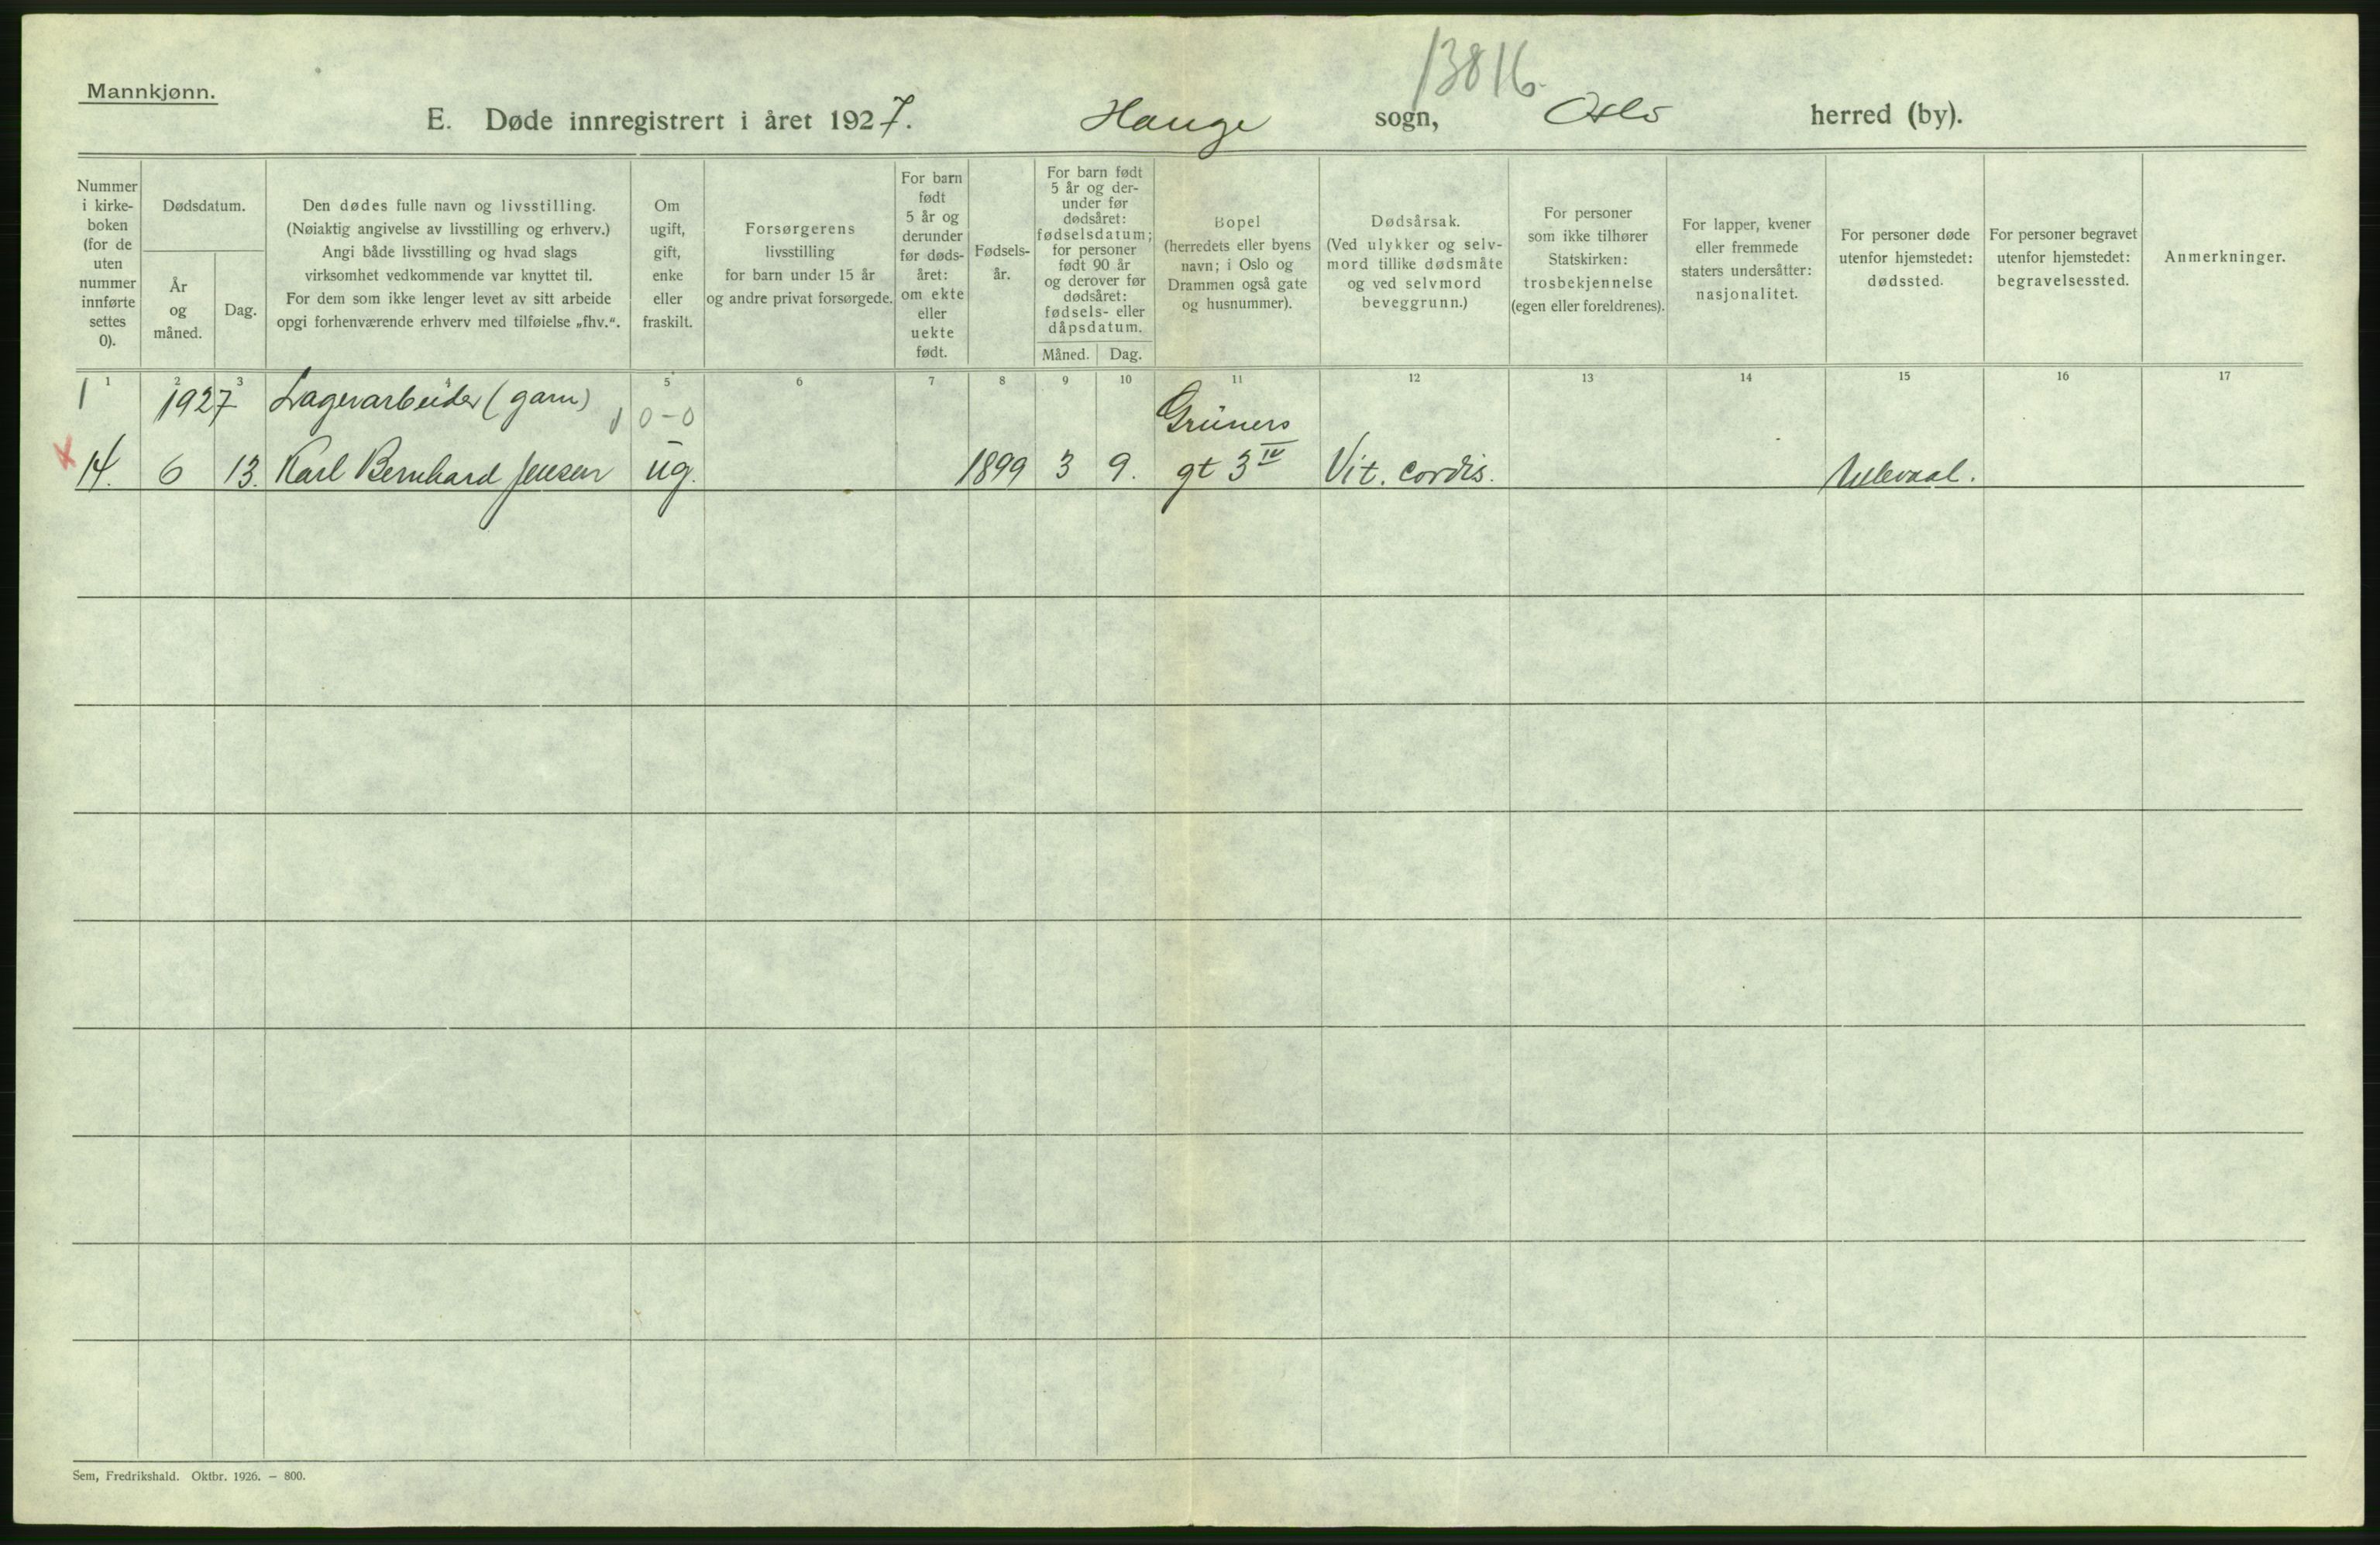 13816.
Mannkjønn.
E. Døde innregistrert i året 1927. Hauge sogn, Oslo herred (by).
Nummer i kirke- boken (for de uten nummer innførte settes 0).
Dødsdatum.
År og måned.
Dag.
Den dødes fulle navn og livsstilling.
(Nøiaktig angivelse av livsstilling og erhverv.)
Angi både livsstilling og hvad slags
virksomhet vedkommende var knyttet til.
For dem som ikke lenger levet av sitt arbeide
opgi forhenværende erhverv med tilføielse „fhv.“.
Om ugift, gift, enke eller fraskilt.
Forsørgerens
livsstilling
for barn under 15 år
og andre privat forsørgede.
For barn født 5 år og derunder før døds- året: om ekte eller uekte født.
Fødsels- år.
For barn født 5 år og der- under før dødsåret: fødselsdatum; for personer født 90 år og derover før dødsåret: fødsels- eller dåpsdatum.
Måned. Dag.
Bopel
(herredets eller byens
navn; i Oslo og
Drammen også gate
og husnummer).
Dødsårsak.
(Ved ulykker og selv-
mord tillike dødsmåte
og ved selvmord
beveggrunn.)
For personer
som ikke tilhører
Statskirken:
trosbekjennelse
(egen eller foreldrenes).
For lapper, kvener
eller fremmede
staters undersåtter:
nasjonalitet.
For personer døde
utenfor hjemstedet:
dødssted.
For personer begravet
utenfor hjemstedet:
begravelsessted.
Anmerkninger.
1 2 3 4 5 6 7 8 9 10 11 12 13 14 15 16 17
1 1927 Lagerarbeider (garn) 0-0 Grüners
14. 6 13. Karl Bernhard Jensen ug. 1899 3 9. gt 3 IV Vit. cordis. Ullevaal.
Sem, Fredrikshald. Oktbr. 1926. — 800.